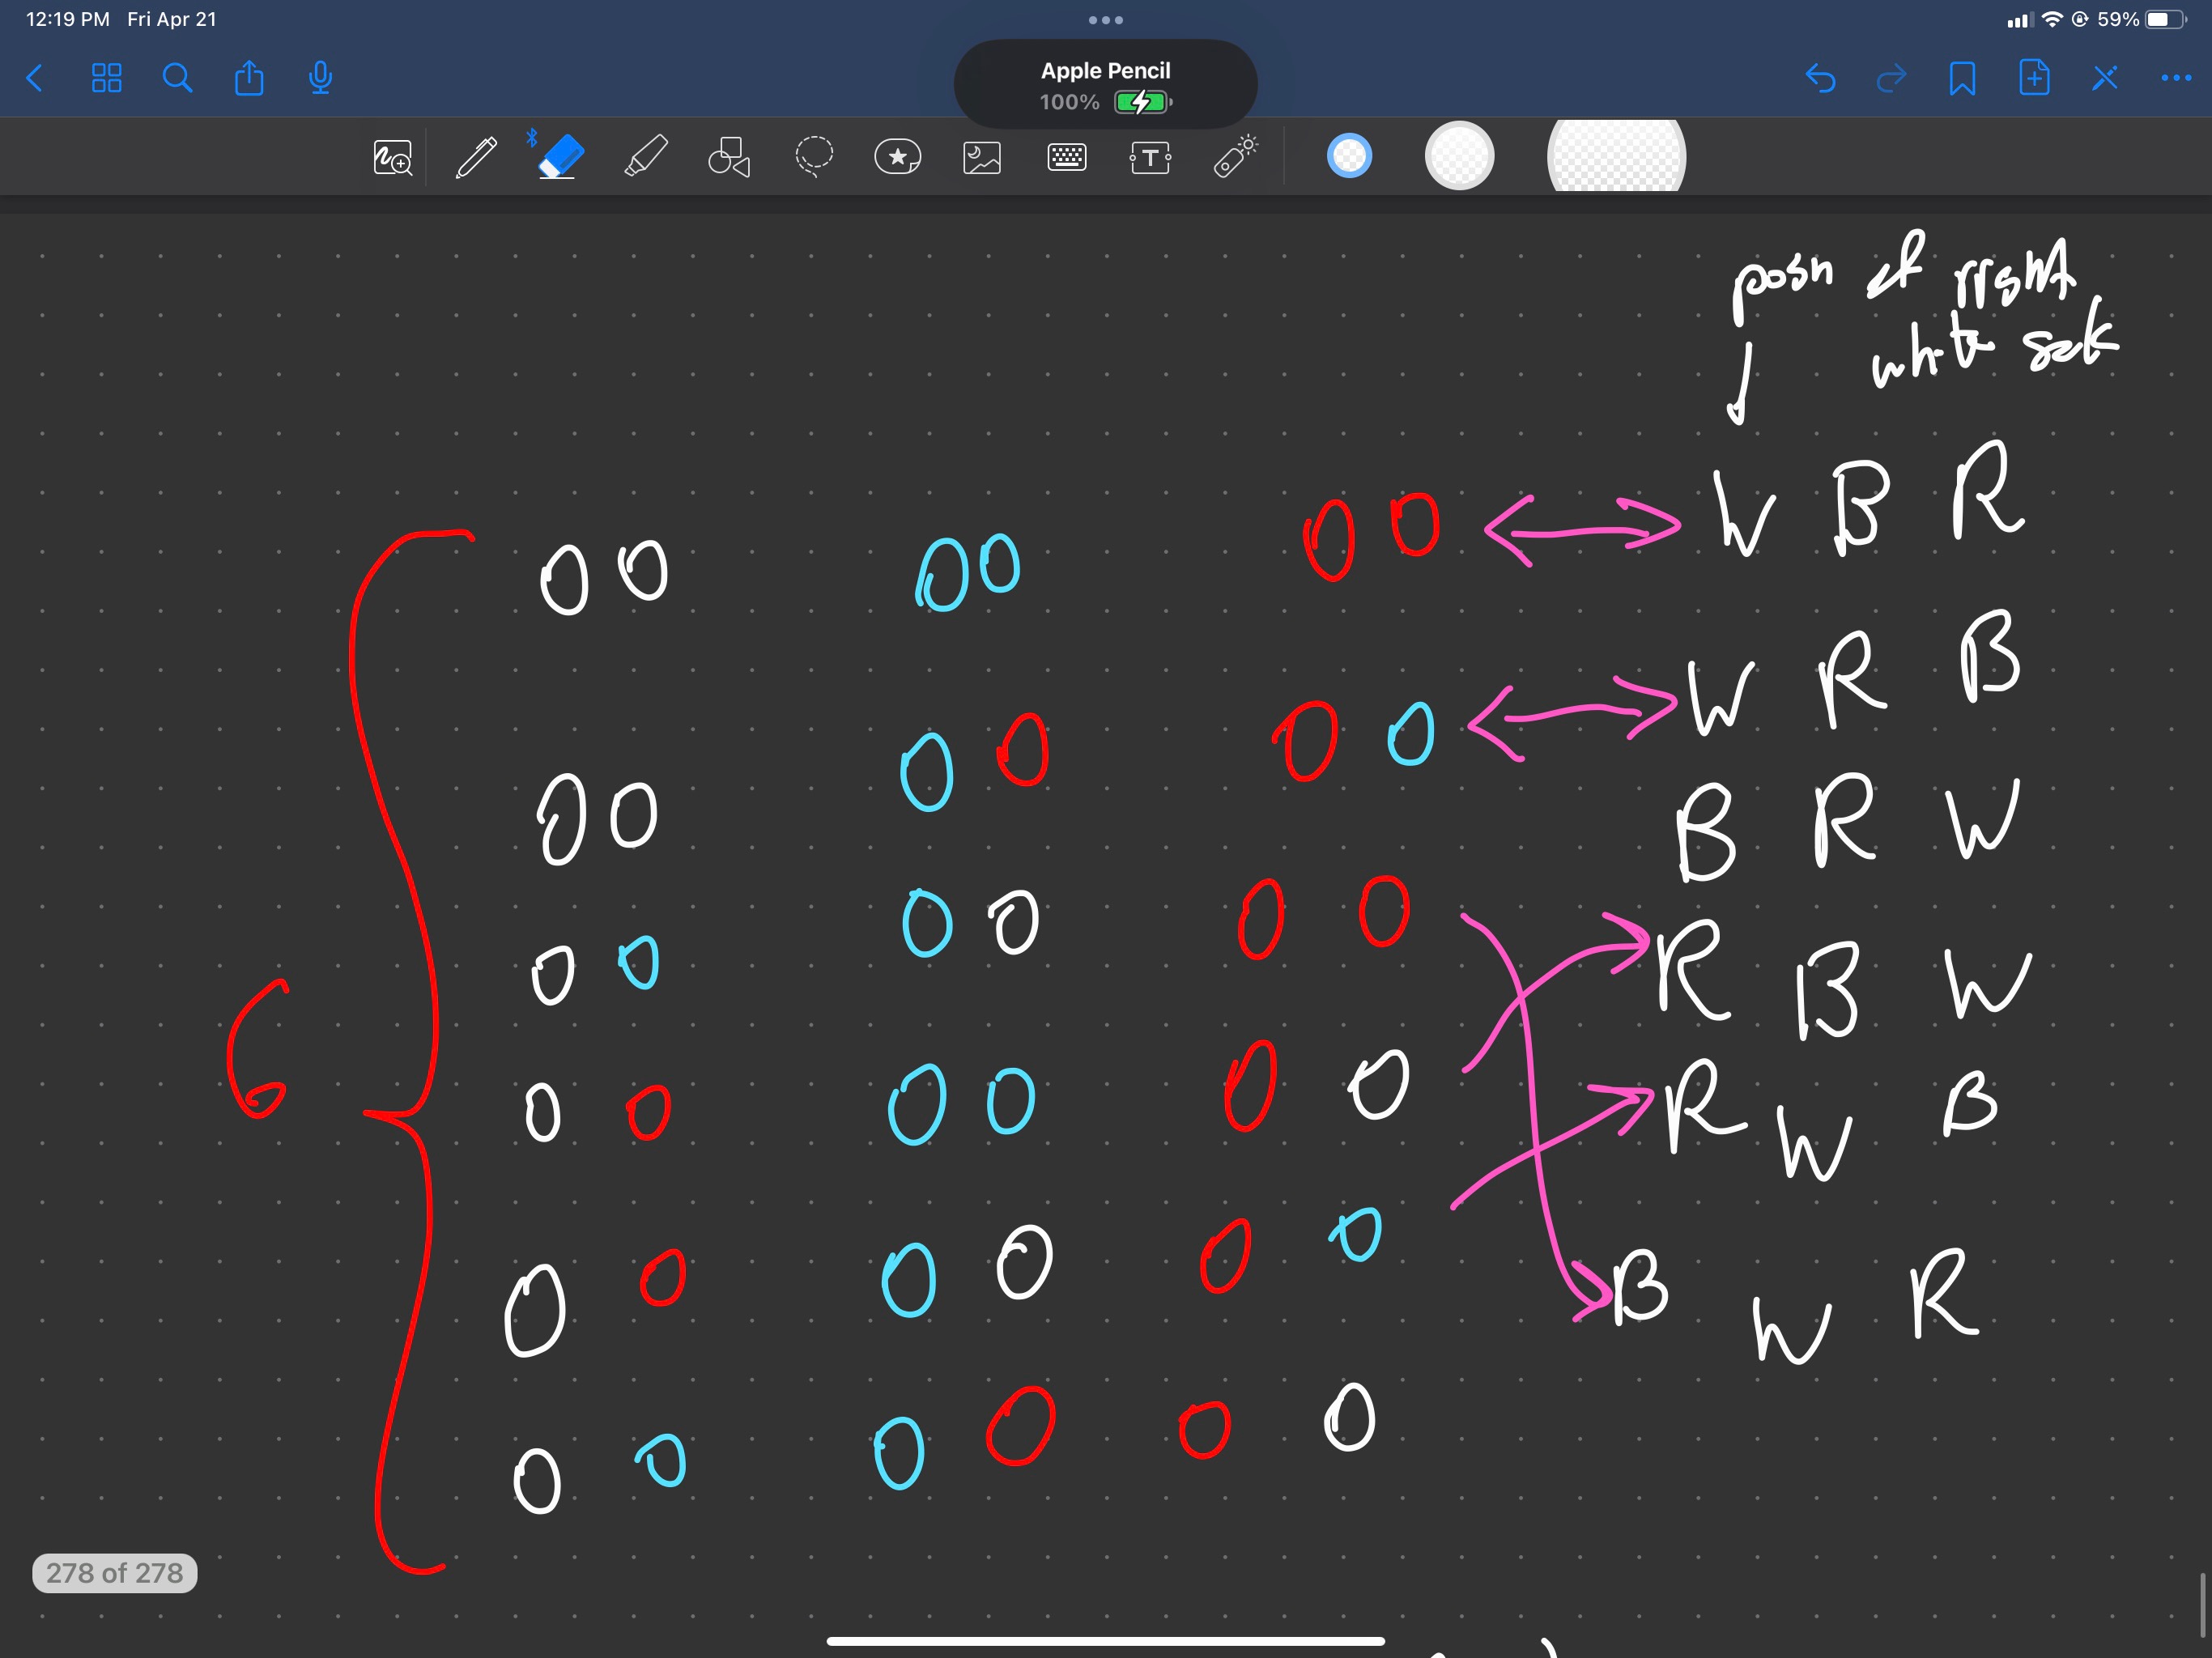 12:19 PM Fri Apr 21
59%
Apple Pencil
100%
T
posn of right
white sock
W B R
W R B
B R W
R B W
6
R W B
B W R
278 of 278